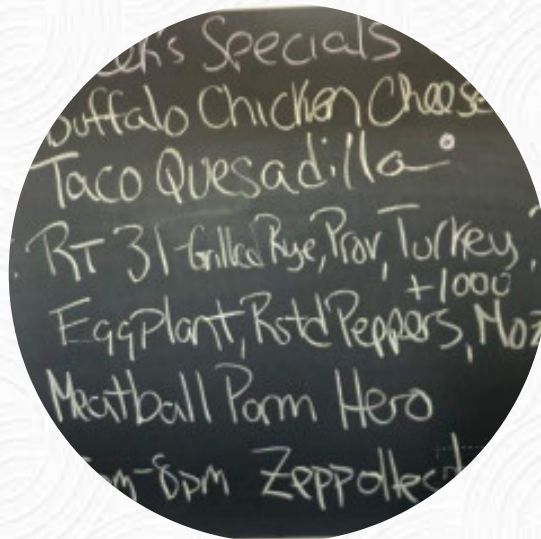 Specials
Buffalo Chicken Cheese
Taco Quesadilla
RT 31-Grilled Rye, Prov, Turkey,
+1000
EggPlant, Rstd Peppers, Moz
Meatball Parm Hero
-8pm Zeppolles